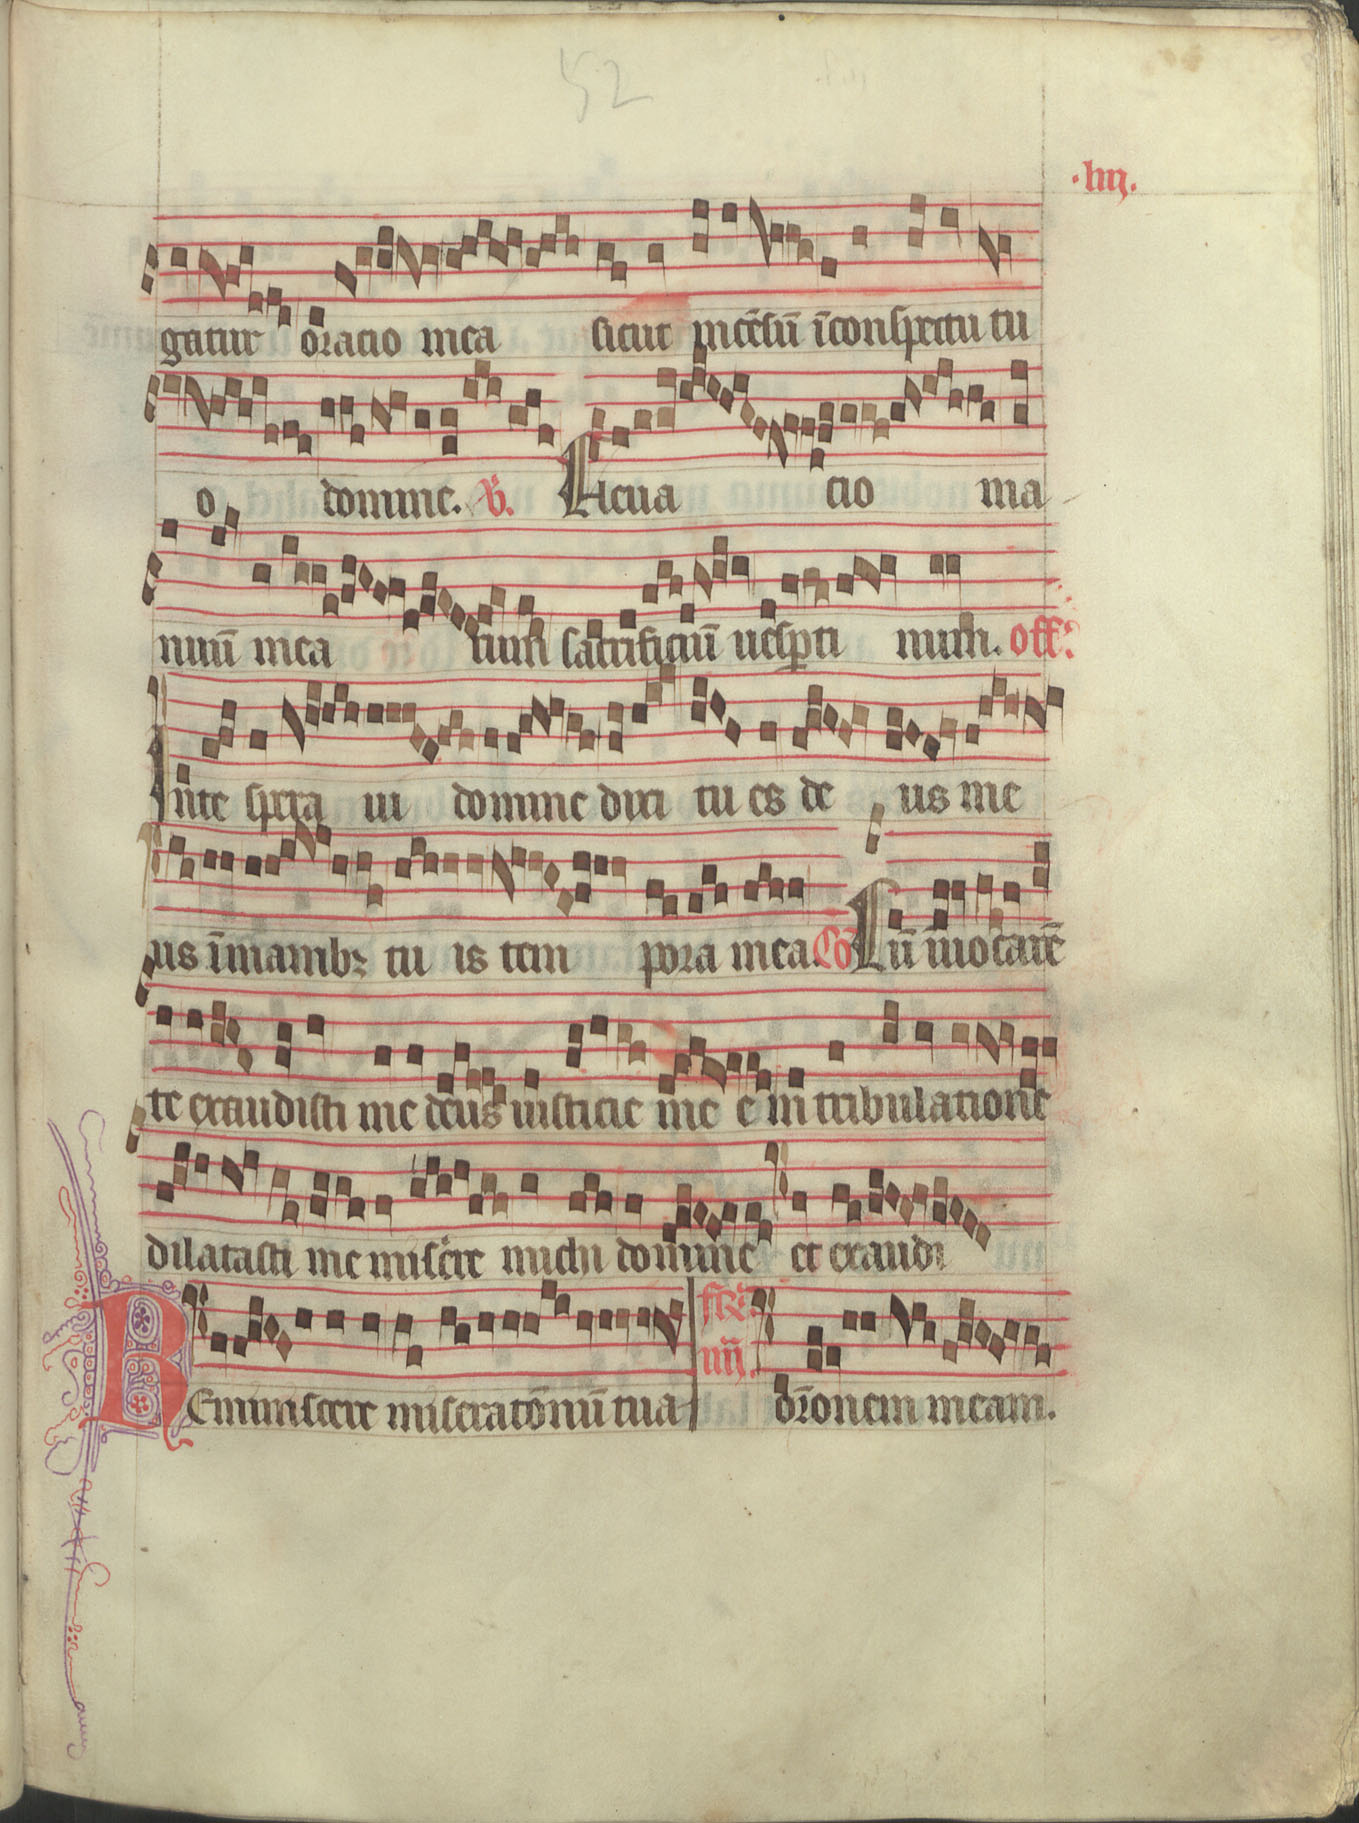 52
·liij.
gatur oracio mea sicut incēsū īconspectu tu
o domine. V̄. Eleua cio ma
nuū mea rum sacrificiū uesꝑti num. off̄.
Inte spera ui domine dixi tu es de us me
us īmanibꝫ tu is tem pora mea. Cō Cū īuocarē
te exaudisti me deus iusticie me e in tribulatione
dilatasti me miserere michi domine et exaudi
fr̄.
iiij.
Reminiscere miseratōnū tua or̄onem meam.